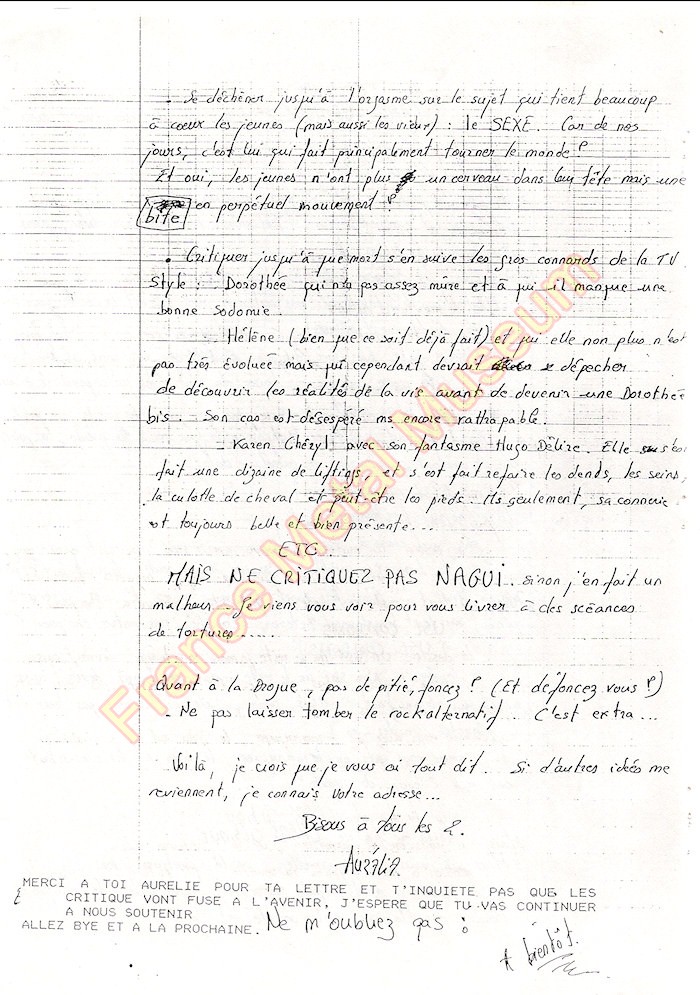 . Se déchéner jusqu'à l'orgasme sur le sujet qui tient beaucoup
à coeux les jeunes (mais aussi les vieux) : le SEXE. Car de nos
jours, c'est lui qui fait principalement tourner le monde !
Et oui, les jeunes n'ont plus un cerveau dans leur tête mais une
bite en perpétuel mouvement !
. Critiquer jusqu'à que mort s'en suive les gros connards de la TV
Style : . Dorothée qui n'a pas assez mûre et à qui il manque une
bonne sodomie.
. Hélène (bien que ce soit déjà fait) et qui elle non plus n'est
pas très évoluée mais qui cependant devrait se dépecher
de découvrir les réalités de la vie avant de devenir une Dorothée
bis. Son cas est désespéré ms encore rattrapable.
- Karen Chéryl avec son fantasme Hugo Délire. Elle s'est
fait une dizaine de liftings et s'est fait refaire les dends, les seins,
la culotte de cheval et peut-être les pieds. Ms seulement, sa connerie
est toujours belle et bien présente...
ETC...
MAIS NE CRITIQUEZ PAS NAGUI. Sinon j'en fait un
malheur. Je viens vous voir pour vous livrer à des scéances
de tortures.....
Quant à la Drogue, pas de pitié, foncez ! (Et défoncez vous !)
- Ne pas laisser tomber le rock alternatif... C'est extra...
Voilà, je crois que je vous ai tout dit. Si d'autres idées me
reviennent, je connais votre adresse...
Bisous à tous les 2.
MERCI A TOI AURELIE POUR TA LETTRE ET T'INQUIETE PAS QUE LES
CRITIQUE VONT FUSE A L'AVENIR, J'ESPERE QUE TU VAS CONTINUER
A NOUS SOUTENIR
ALLEZ BYE ET A LA PROCHAINE. Ne m'oubliez pas :
à bientôt.
France Metal Museum